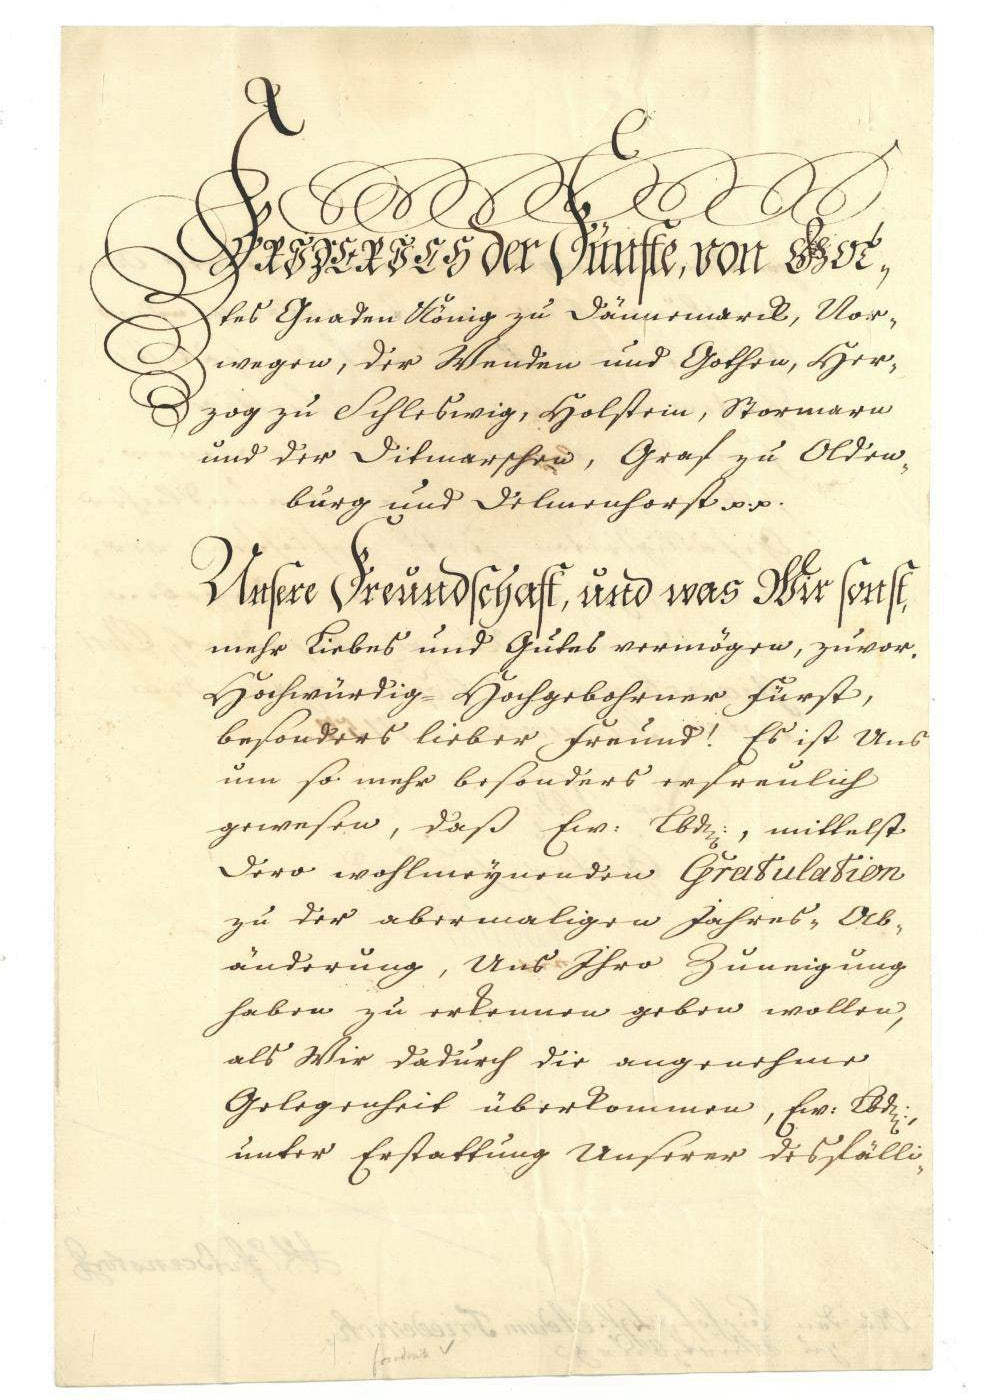 FRIDERICH der Fünfte, von GOt,
tes Gnaden König zu Dännemarck, Nor,
wegen, der Wenden und Gothen, Her,
zog zu Schleswig, Holstein, Stormarn
und der Ditmarschen, Graf zu Olden,
burg und Delmenhorst p.p.
Unsere Freundschaft, und was Wir sonst,
mehr Liebes und Gutes vermögen, zuvor.
Hochwürdig= Hochgebohrner Fürst,
besonders lieber Freund! Es ist Uns
um so mehr besonders erfreulich
gewesen, daß Ew: Lbd:, mittelst
Dero wohlmeynenden Gratulation
zu der abermaligen Jahres, Ab,
änderung, Uns Ihro Zuneigung
haben zu erkennen geben wollen,
als Wir dadurch die angenehme
Gelegenheit überkommen, Ew: Lbd:,
unter Erstattung Unserer desfälli,